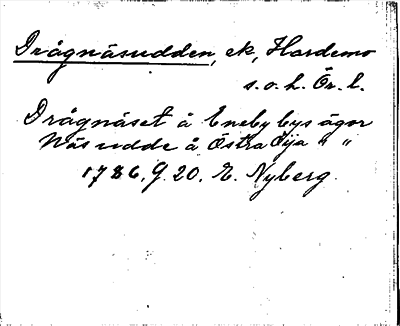 Drågnäsudden, ek, Hardemo
s. o. h. Ör. l.
Drågnäset å Eneby bys ägor
Näsudde å Östra Öja " "
1786. G. 20. E. Nyberg.